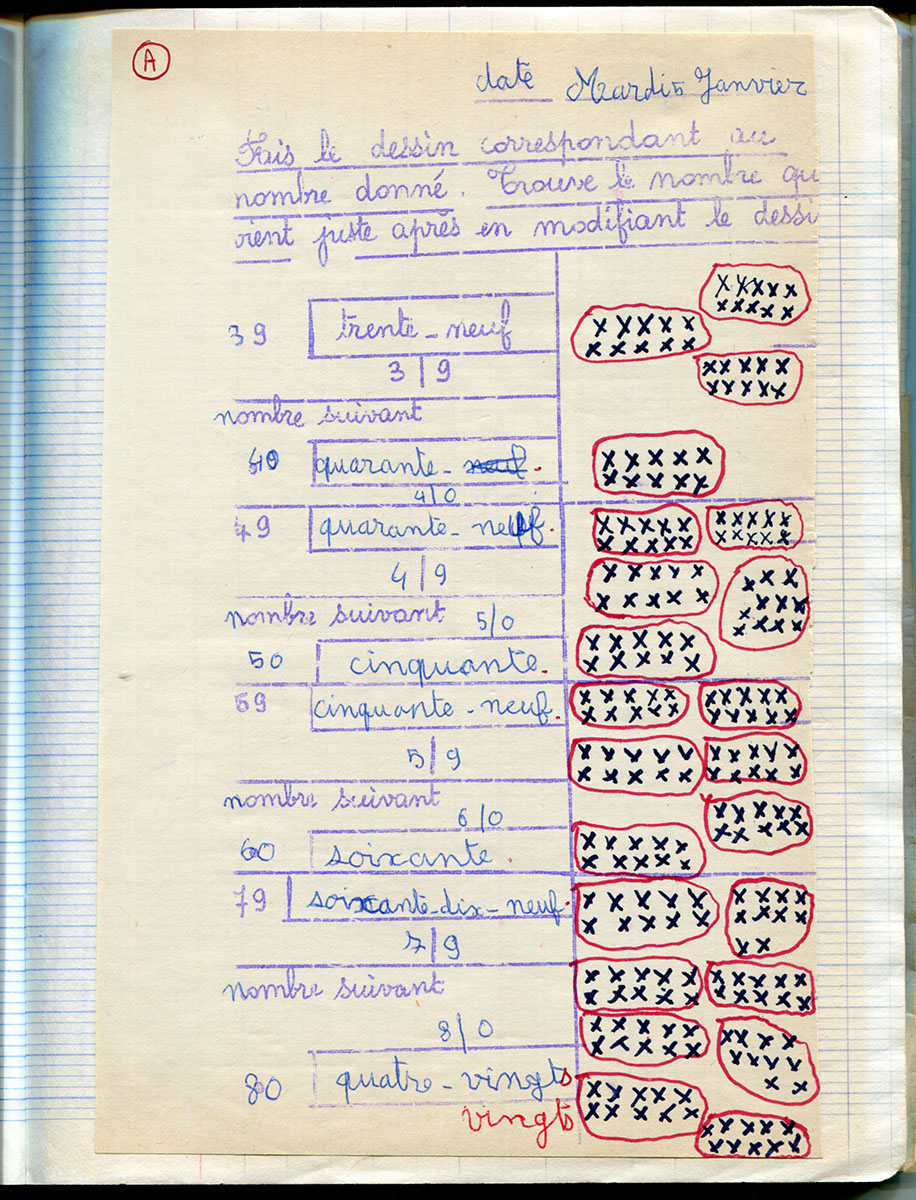 A
date Mardi 5 Janvier
Fais le dessin correspondant au
nombre donné. Trouve le nombre qu
vient juste après en modifiant le dessi
39 trente-neuf
3|9
nombre suivant
40 quarante-
4/0
49 quarante-neuf.
4|9
nombre suivant 5/0
50 cinquante.
59 cinquante-neuf.
5|9
nombre suivant
6/0
60 soixante.
79 soixante-dix-neuf.
7|9
nombre suivant
8/0
80 quatre-vingts
vingts